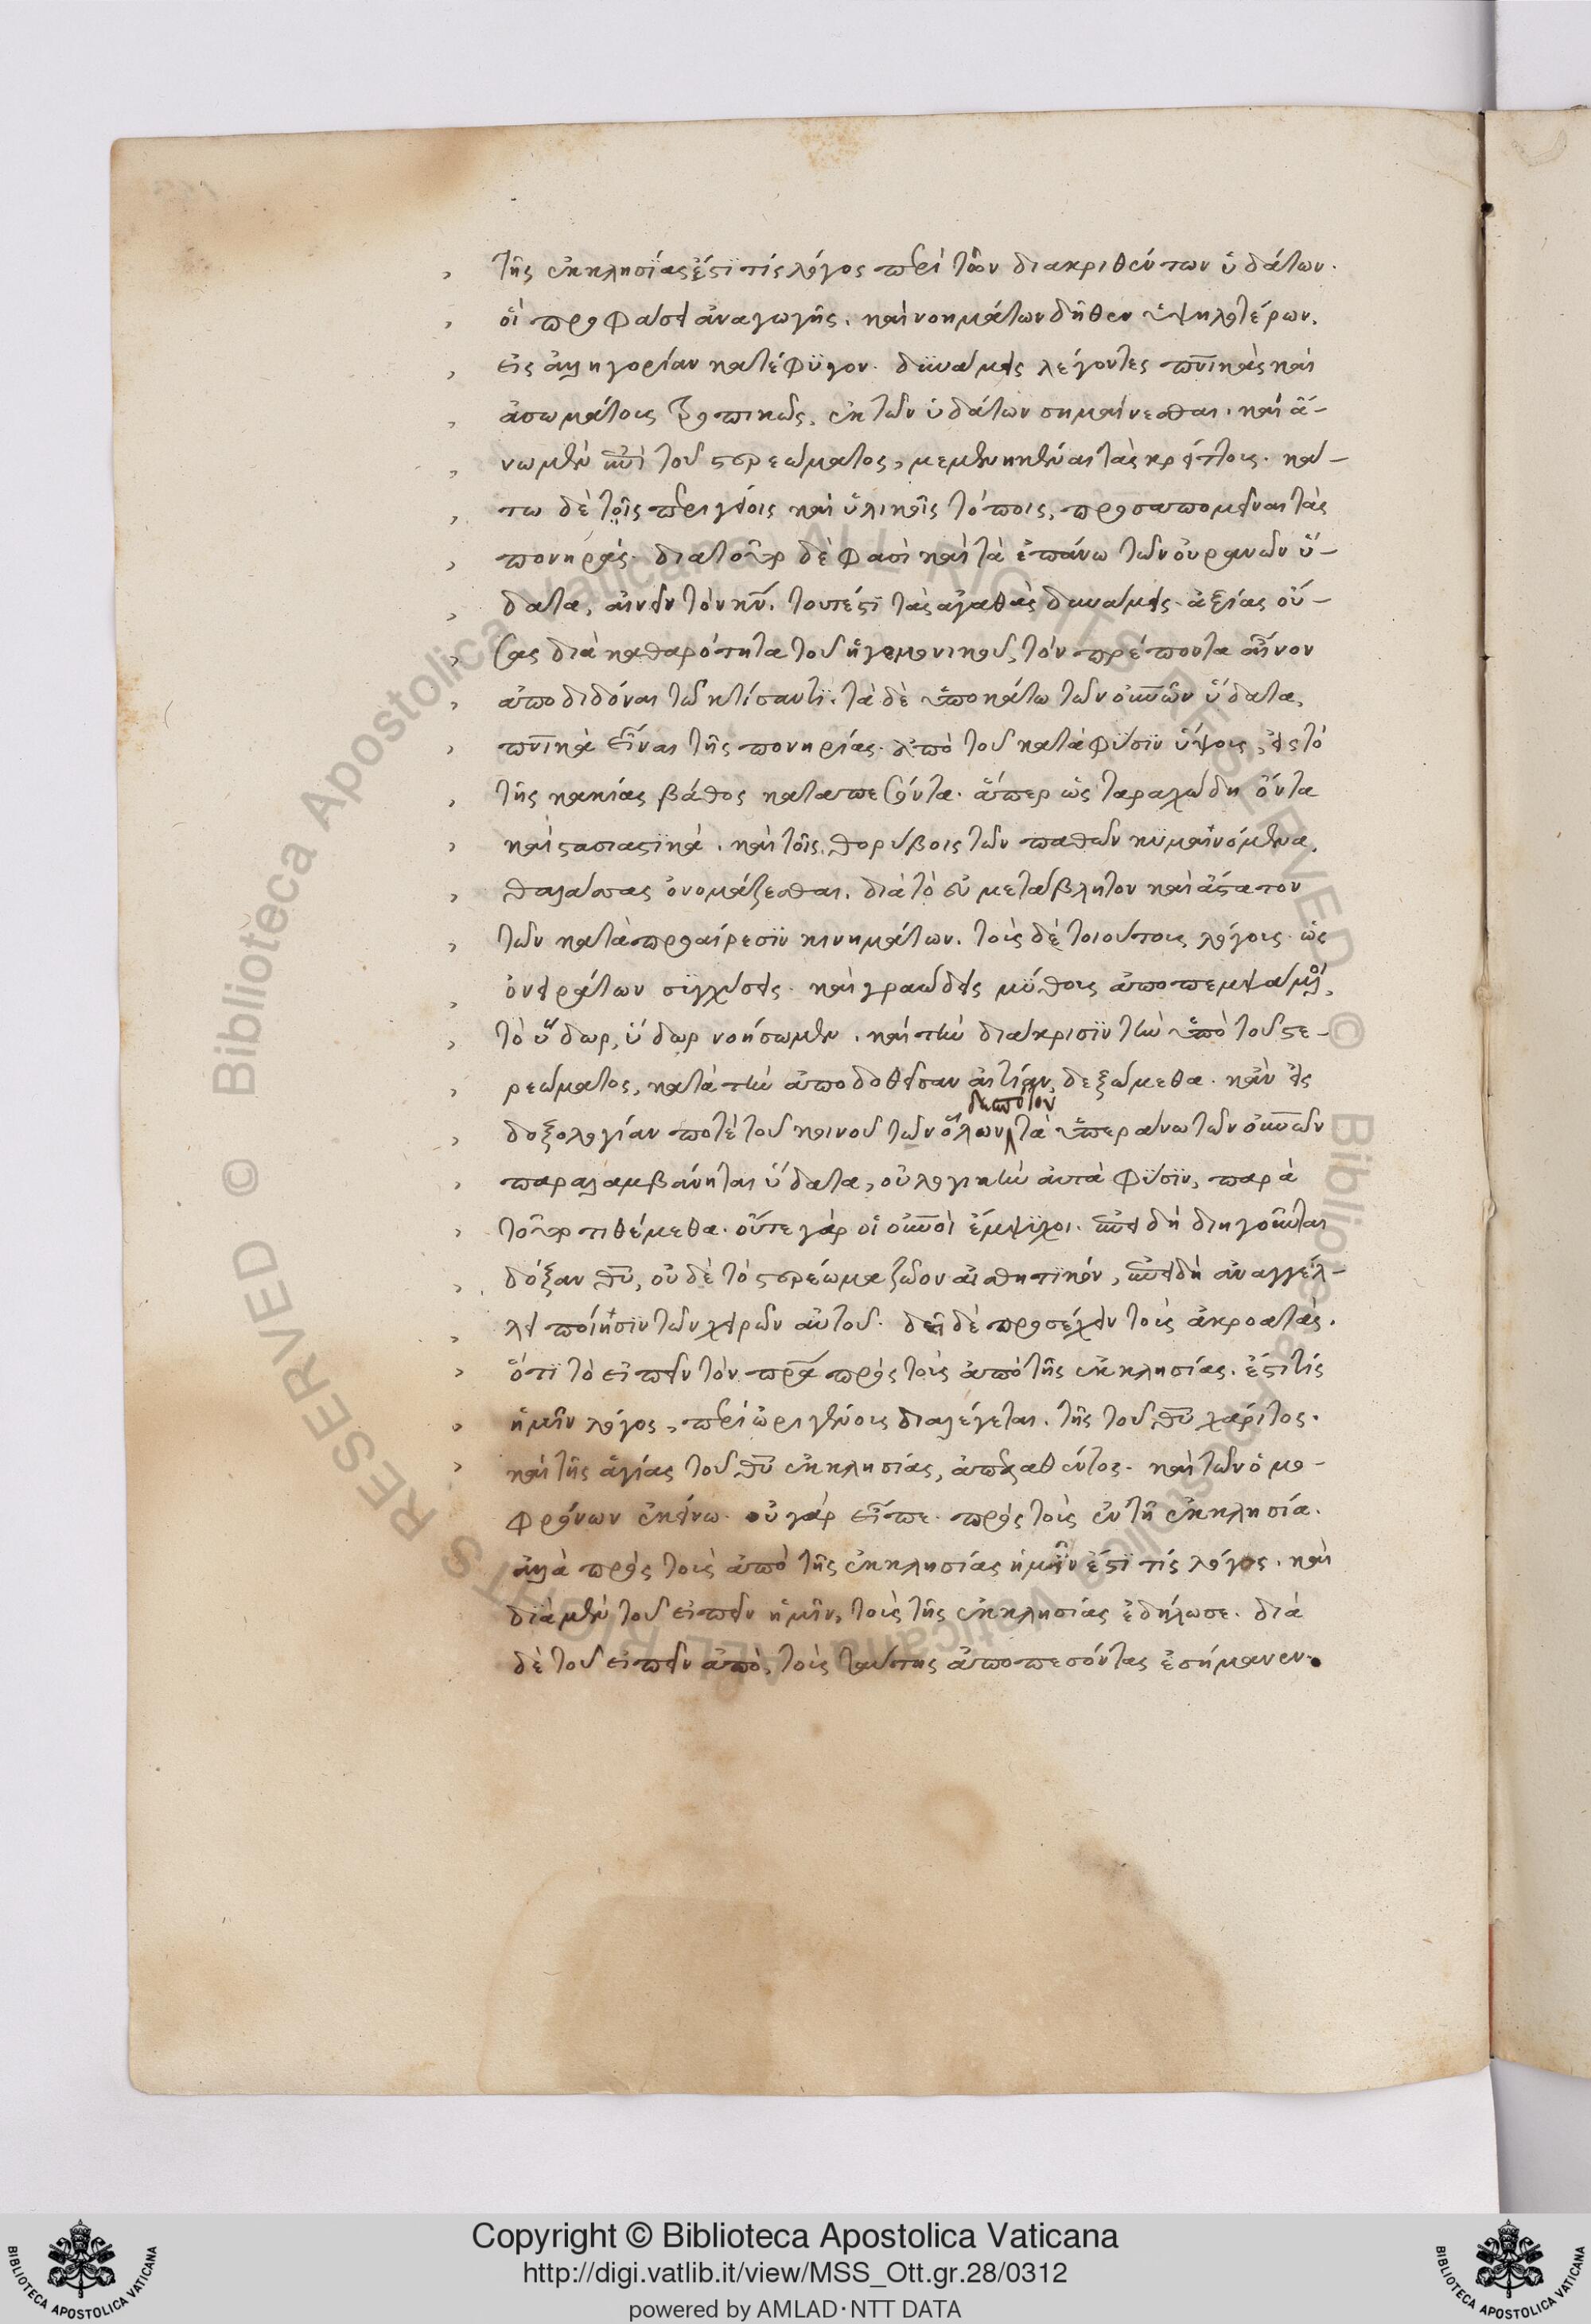 τῆς ἐκκλησίας ἐστὶ τίς λόγος περὶ τῶν διακριθέντων ὑδάτων.
οἱ προφάσει ἀναγωγῆς. καὶ νοημάτων δῆθεν ὑψηλοτέρων.
εἰς ἀλληγορίαν κατέφυγον. δυνάμεις λέγοντες πν̅ικὰς καὶ
ἀσωμάτους τροπικῶς, ἐκ τῶν ὑδάτων σημαίνεσθαι. καὶ ἄ-
νω μὲν ἐπὶ τοῦ στερεώματος, μεμενηκέναι τὰς κρείττους. κά-
τω δὲ τοῖς περιγείοις καὶ ὑλικοῖς τόποις, προσαπομεῖναι τὰς
πονηράς. διατοῦτο δέ φασι καὶ τὰ ἐπάνω τῶν οὐρανῶν ὕ-
δατα, αἰνεῖν τὸν κν̅. τουτέστι τὰς ἀγαθὰς δυνάμεις. ἀξίας οὔ-
σας διὰ καθαρότητα τοῦ ἡγεμονικοῦ, τὸν πρέποντα αἶνον
ἀποδιδόναι τῷ κτίσαντι. τὰ δὲ ὑποκάτω τῶν οὐν̅ῶν ὕδατα,
πν̅ικὰ εἶναι τῆς πονηρίας. ἀπὸ τοῦ κατὰ φύσιν ὕψους, εἰς τὸ
τῆς κακίας βάθος καταπεσόντα. ἅπερ ὡς ταραχώδη ὄντα
καὶ στασιαστικά. καὶ τοῖς θορύβοις τῶν παθῶν κυμαινόμενα.
θαλάσσας ὀνομάζεσθαι. διὰ τὸ εὐμετάβλητον καὶ ἄστατον
τῶν κατὰ προαίρεσιν κινημάτων. τοὺς δὲ τοιούτους λόγους. ὡς
ὀνειράτων συγχύσεις. καὶ γραώδεις μύθους ἀποπεμψάμενοι,
τὸ ὕδωρ, ὕδωρ νοήσωμεν. καὶ τὴν διάκρισιν τὴν ὑπὸ τοῦ στε-
ρεώματος, κατὰ τὴν ἀποδοθεῖσαν αἰτίαν, δεξώμεθα. κἂν εἰς
δεσπότου
δοξολογίαν ποτὲ τοῦ κοινοῦ τῶν ὅλων τὰ ὑπεράνω τῶν οὐν̅ῶν
παραλαμβάνηται ὕδατα, οὐ λογικὴν αὐτὰ φύσιν, παρὰ
τοῦτο τιθέμεθα. οὔτε γὰρ οἱ οὐν̅οὶ ἔμψυχοι. ἐπειδὴ διηγοῦνται
δόξαν θυ̅, οὐδὲ τὸ στερέωμα ζῶον αἰσθητικόν, ἐπειδὴ ἀναγγέλ-
λει ποίησιν τῶν χειρῶν αὐτοῦ. δεῖ δὲ προσέχειν τοὺς ἀκροατάς.
ὅτι τὸ εἰπεῖν τὸν πρ̅α πρὸς τοὺς ἀπὸ τῆς ἐκκλησίας. ἐστί τίς
ἡμῖν λόγος, περὶ ὠριγένους διαλέγεται. τῆς τοῦ θυ̅ χάριτος.
καὶ τῆς ἁγίας τοῦ θυ̅ ἐκκλησίας, ἀποσπασθέντος. καὶ τῶν ὁμο-
φρόνων ἐκείνω. οὐ γὰρ εἶπε. πρὸς τοὺς ἐν τῇ ἐκκλησία.
ἀλλὰ πρὸς τοὺς ἀπὸ τῆς ἐκκλησίας ἡμῖν ἐστί τίς λόγος. καὶ
διὰ μὲν τοῦ εἰπεῖν ἡμῖν, τοὺς τῆς ἐκκλησίας ἐδήλωσε. διὰ
δὲ τοῦ εἰπεῖν ἀπὸ, τοὺς ταύτης ἀποπεσόντας ἐσήμανεν.
© Biblioteca Apostolica Vaticana ALL RIGHTS RESERVED
© Biblioteca Apostolica Vaticana ALL RIGHTS RESERVED
Copyright © Biblioteca Apostolica Vaticana
http://digi.vatlib.it/view/MSS_Ott.gr.28/0312
powered by AMLAD·NTT DATA
BIBLIOTECA APOSTOLICA VATICANA
BIBLIOTECA APOSTOLICA VATICANA